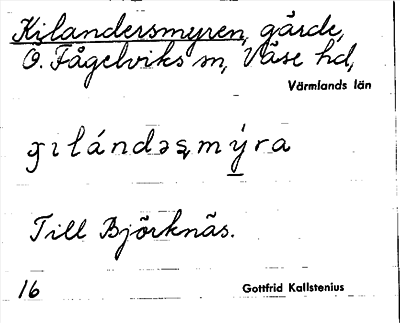 Kilandersmyren, gärde,
Ö. Fågelviks sn, Väse hd,
Värmlands län
Till Björknäs.
16
Gottfrid Kallstenius